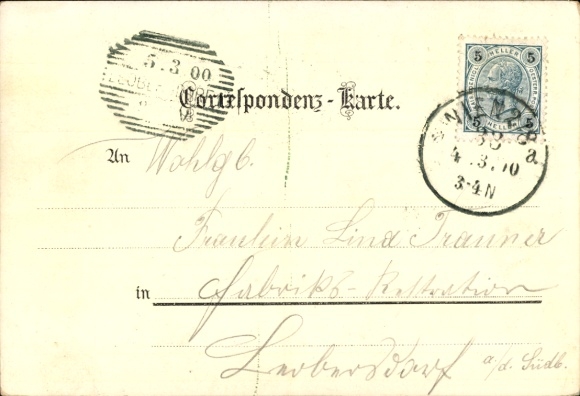 5.3 00
5 HELLER 5
Correspondenz-Karte.
WIEN
4.3.00
3-4N
An Wohlgb.
Fräulein Lina Trauner
in Fabriks-Restration
Leobersdorf a/d. Südb.